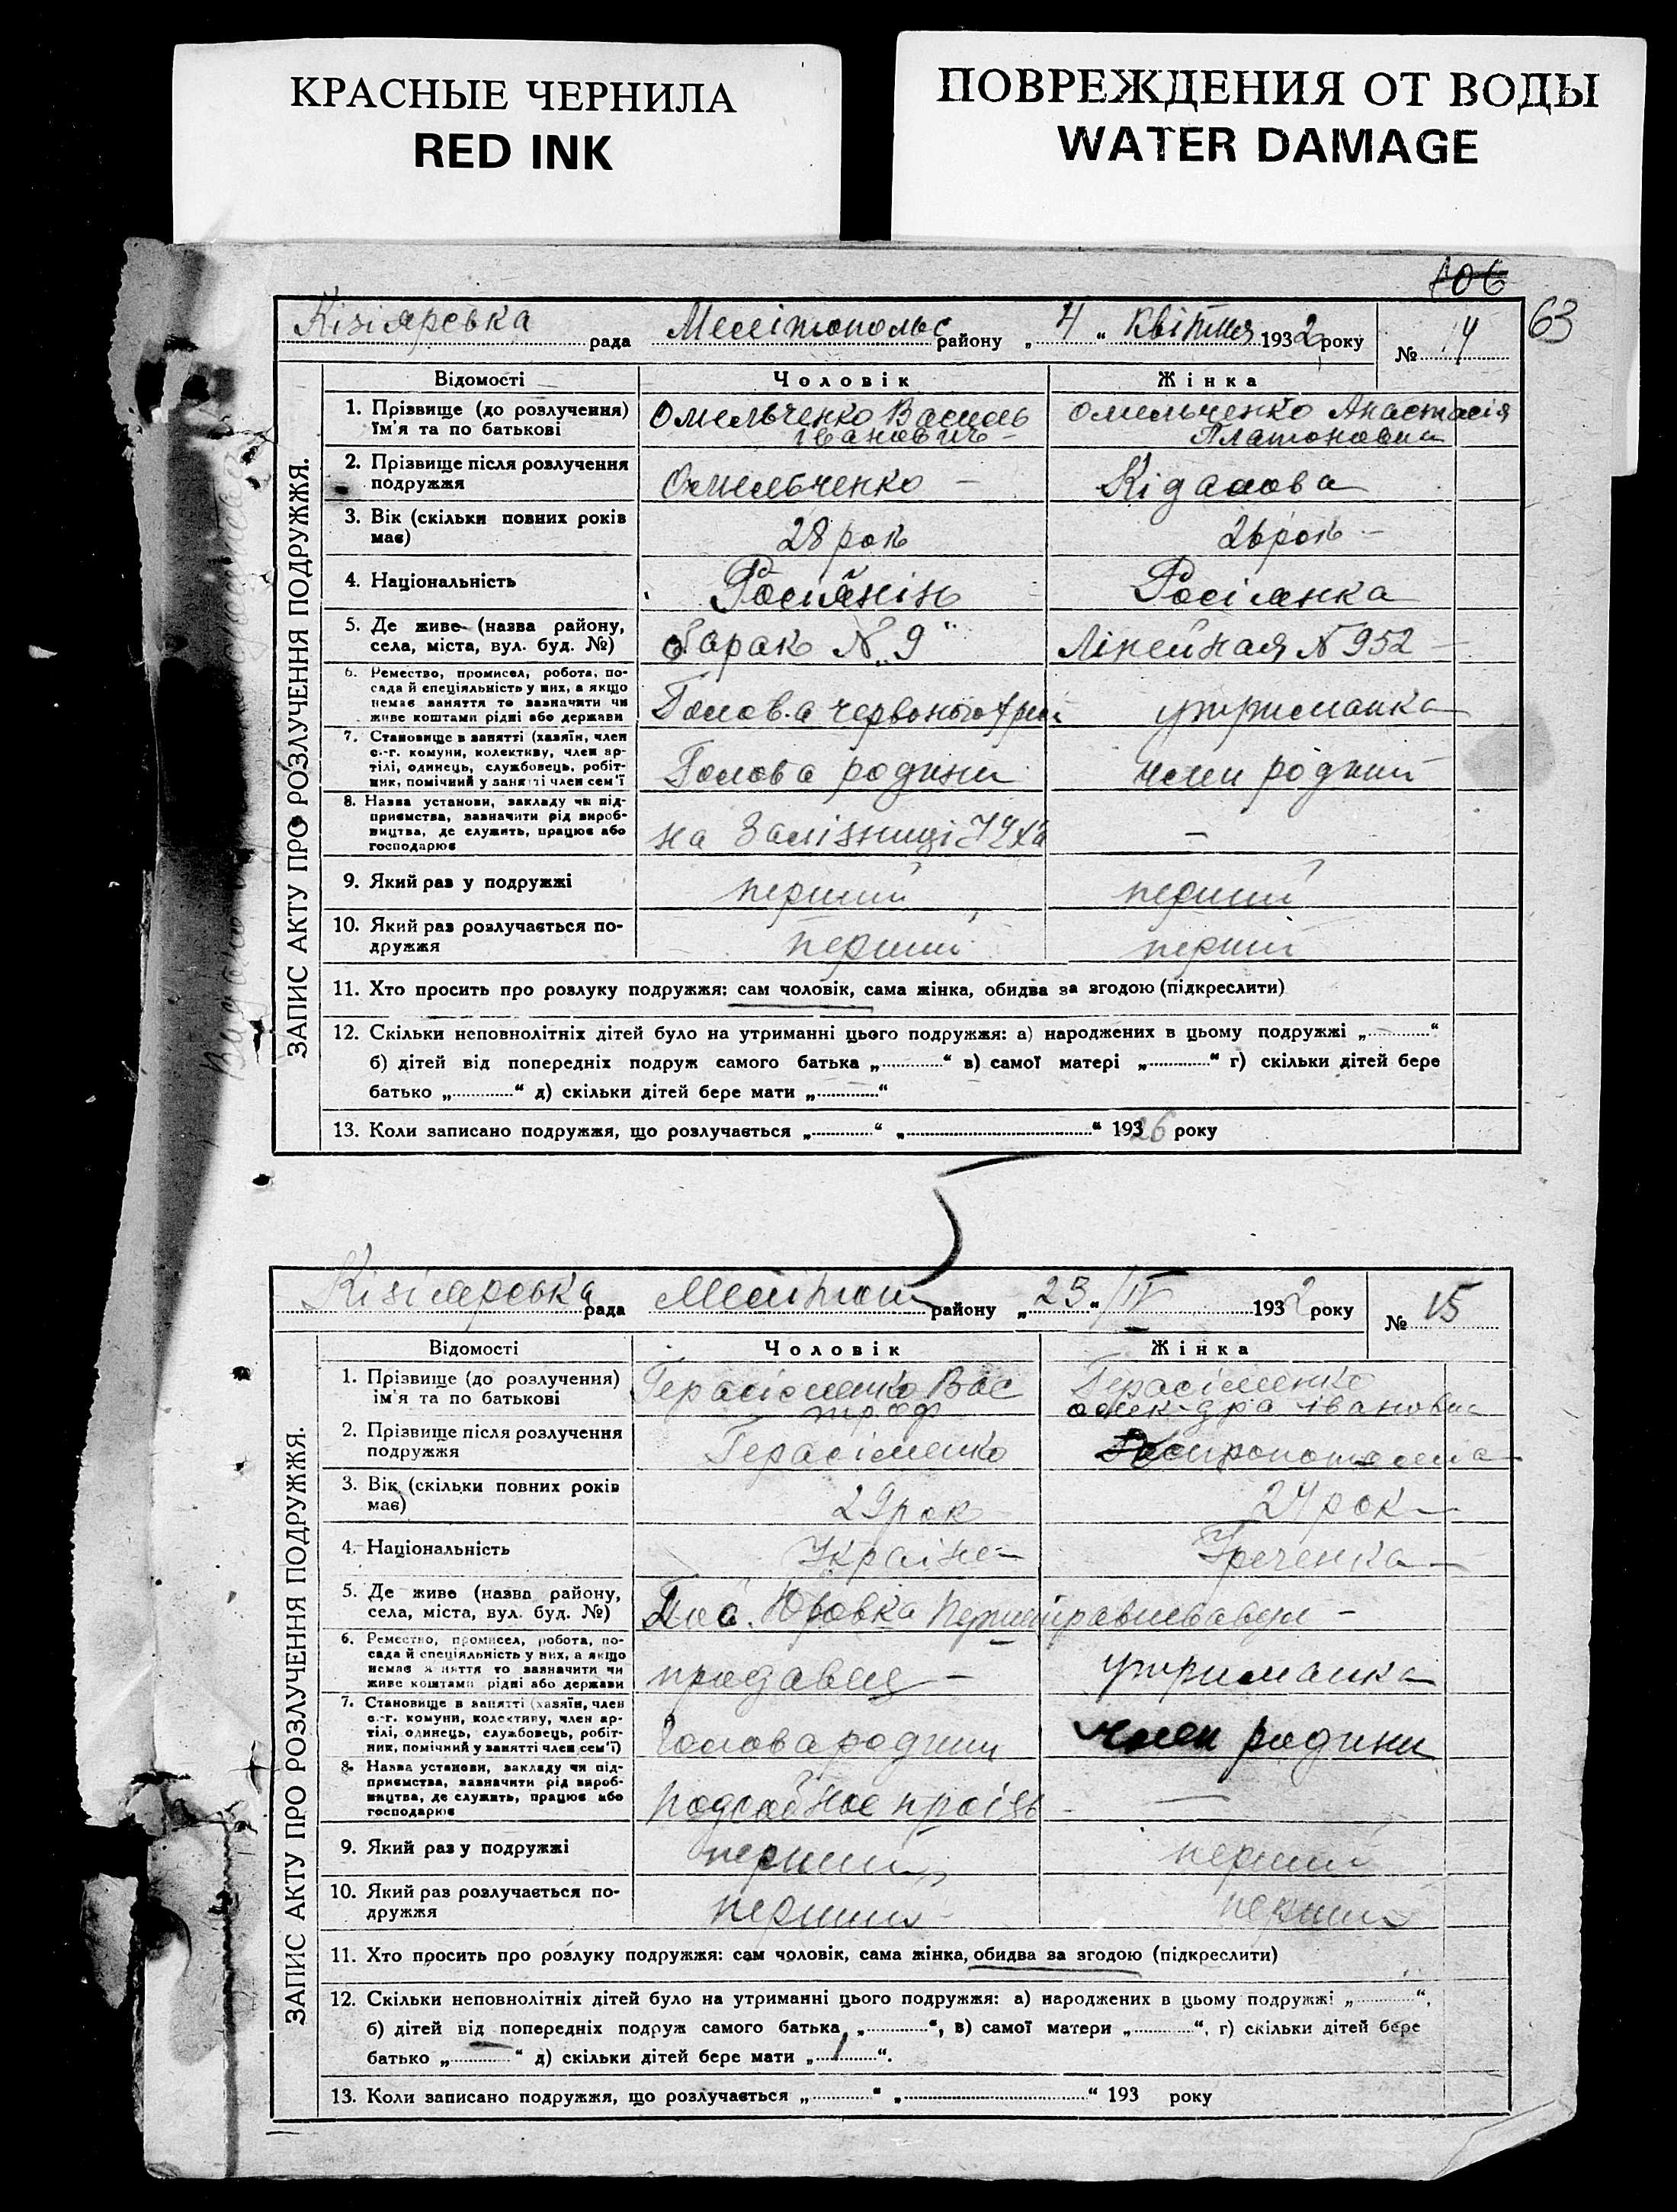 КРАСНЫЕ ЧЕРНИЛА
RED INK
ПОВРЕЖДЕНИЯ ОТ ВОДЫ
WATER DAMAGE
106
63
Кізіярська рада Мелітопольс району „ 4 “ квітня 1932 року № 14
ЗАПИС АКТУ ПРО РОЗЛУЧЕННЯ ПОДРУЖЖЯ.
Відомості Чоловік Жінка
1. Прізвище (до розлучення) Омельченко Василь Омельченко Анастасія
ім'я та по батькові Іванович Платоновна
2. Прізвище після розлучення
подружжя Омельченко – Кідалова
3. Вік (скільки повних років
має) 28 рок 26 рок –
4. Національність Росіянін Росіянка
5. Де живе (назва району,
села, міста, вул. буд. №) барак № „9“ Лінейная № 952 –
6. Ремество, промисел, робота, по-
сада й спеціяльність у них, а якщо
немає заняття то зазначити чи
живе коштами рідні або держави Голов.а червоного утриманка
7. Становище в занятті (хазяїн, член
с.-г. комуни, колективу, член ар-
тілі, одинець, службовець, робіт-
ник, помічний у занятті член сем'ї Голова родини член родини
8. Назва установи, закладу чи під-
приємства, зазначити рід вироб-
ництва, де служить, працює або
господарює на Залізниці –
9. Який раз у подружжі перший перший
10. Який раз розлучається по-
дружжя перший перший
11. Хто просить про розлуку подружжя: сам чоловік, сама жінка, обидва за згодою (підкреслити)
12. Скільки неповнолітніх дітей було на утриманні цього подружжя: а) народжених в цьому подружжі „............“
б) дітей від попередніх подруж самого батька „............“ в) самої матері „............“ г) скільки дітей бере
батько „............“ д) скільки дітей бере мати „............“
13. Коли записано подружжя, що розлучається „............“ „............“ 193 26 року
Кізіярська рада Меліт району „ 23 “ /IV 1932 року № 15
ЗАПИС АКТУ ПРО РОЗЛУЧЕННЯ ПОДРУЖЖЯ.
Відомості Чоловік Жінка
1. Прізвище (до розлучення) Герасіменко Вас Герасіменко
ім'я та по батькові троф Олек-дра Івановна
2. Прізвище після розлучення
подружжя Герасіменко
3. Вік (скільки повних років
має) 29 рок 24 рок
4. Національність Україне Греченка
5. Де живе (назва району,
села, міста, вул. буд. №) Юровка
6. Ремество, промисел, робота, по-
сада й спеціяльність у них, а якщо
немає заняття то зазначити чи
живе коштами рідні або держави продавец – утриманка
7. Становище в занятті (хазяїн, член
с.-г. комуни, колективу, член ар-
тілі, одинець, службовець, робіт-
ник, помічний у занятті член сем'ї) Голова родини член родини
8. Назва установи, закладу чи під-
приємства, зазначити рід вироб-
ництва, де служить, працює або
господарює подсобное –
9. Який раз у подружжі перший перший
10. Який раз розлучається по-
дружжя перший перший
11. Хто просить про розлуку подружжя: сам чоловік, сама жінка, обидва за згодою (підкреслити)
12. Скільки неповнолітніх дітей було на утриманні цього подружжя: а) народжених в цьому подружжі „............“,
б) дітей від попередніх подруж самого батька „............“, в) самої матери „............“, г) скільки дітей бере
батько „............“ д) скільки дітей бере мати „ 1 “.
13. Коли записано подружжя, що розлучається „............“ „............“ 193 року